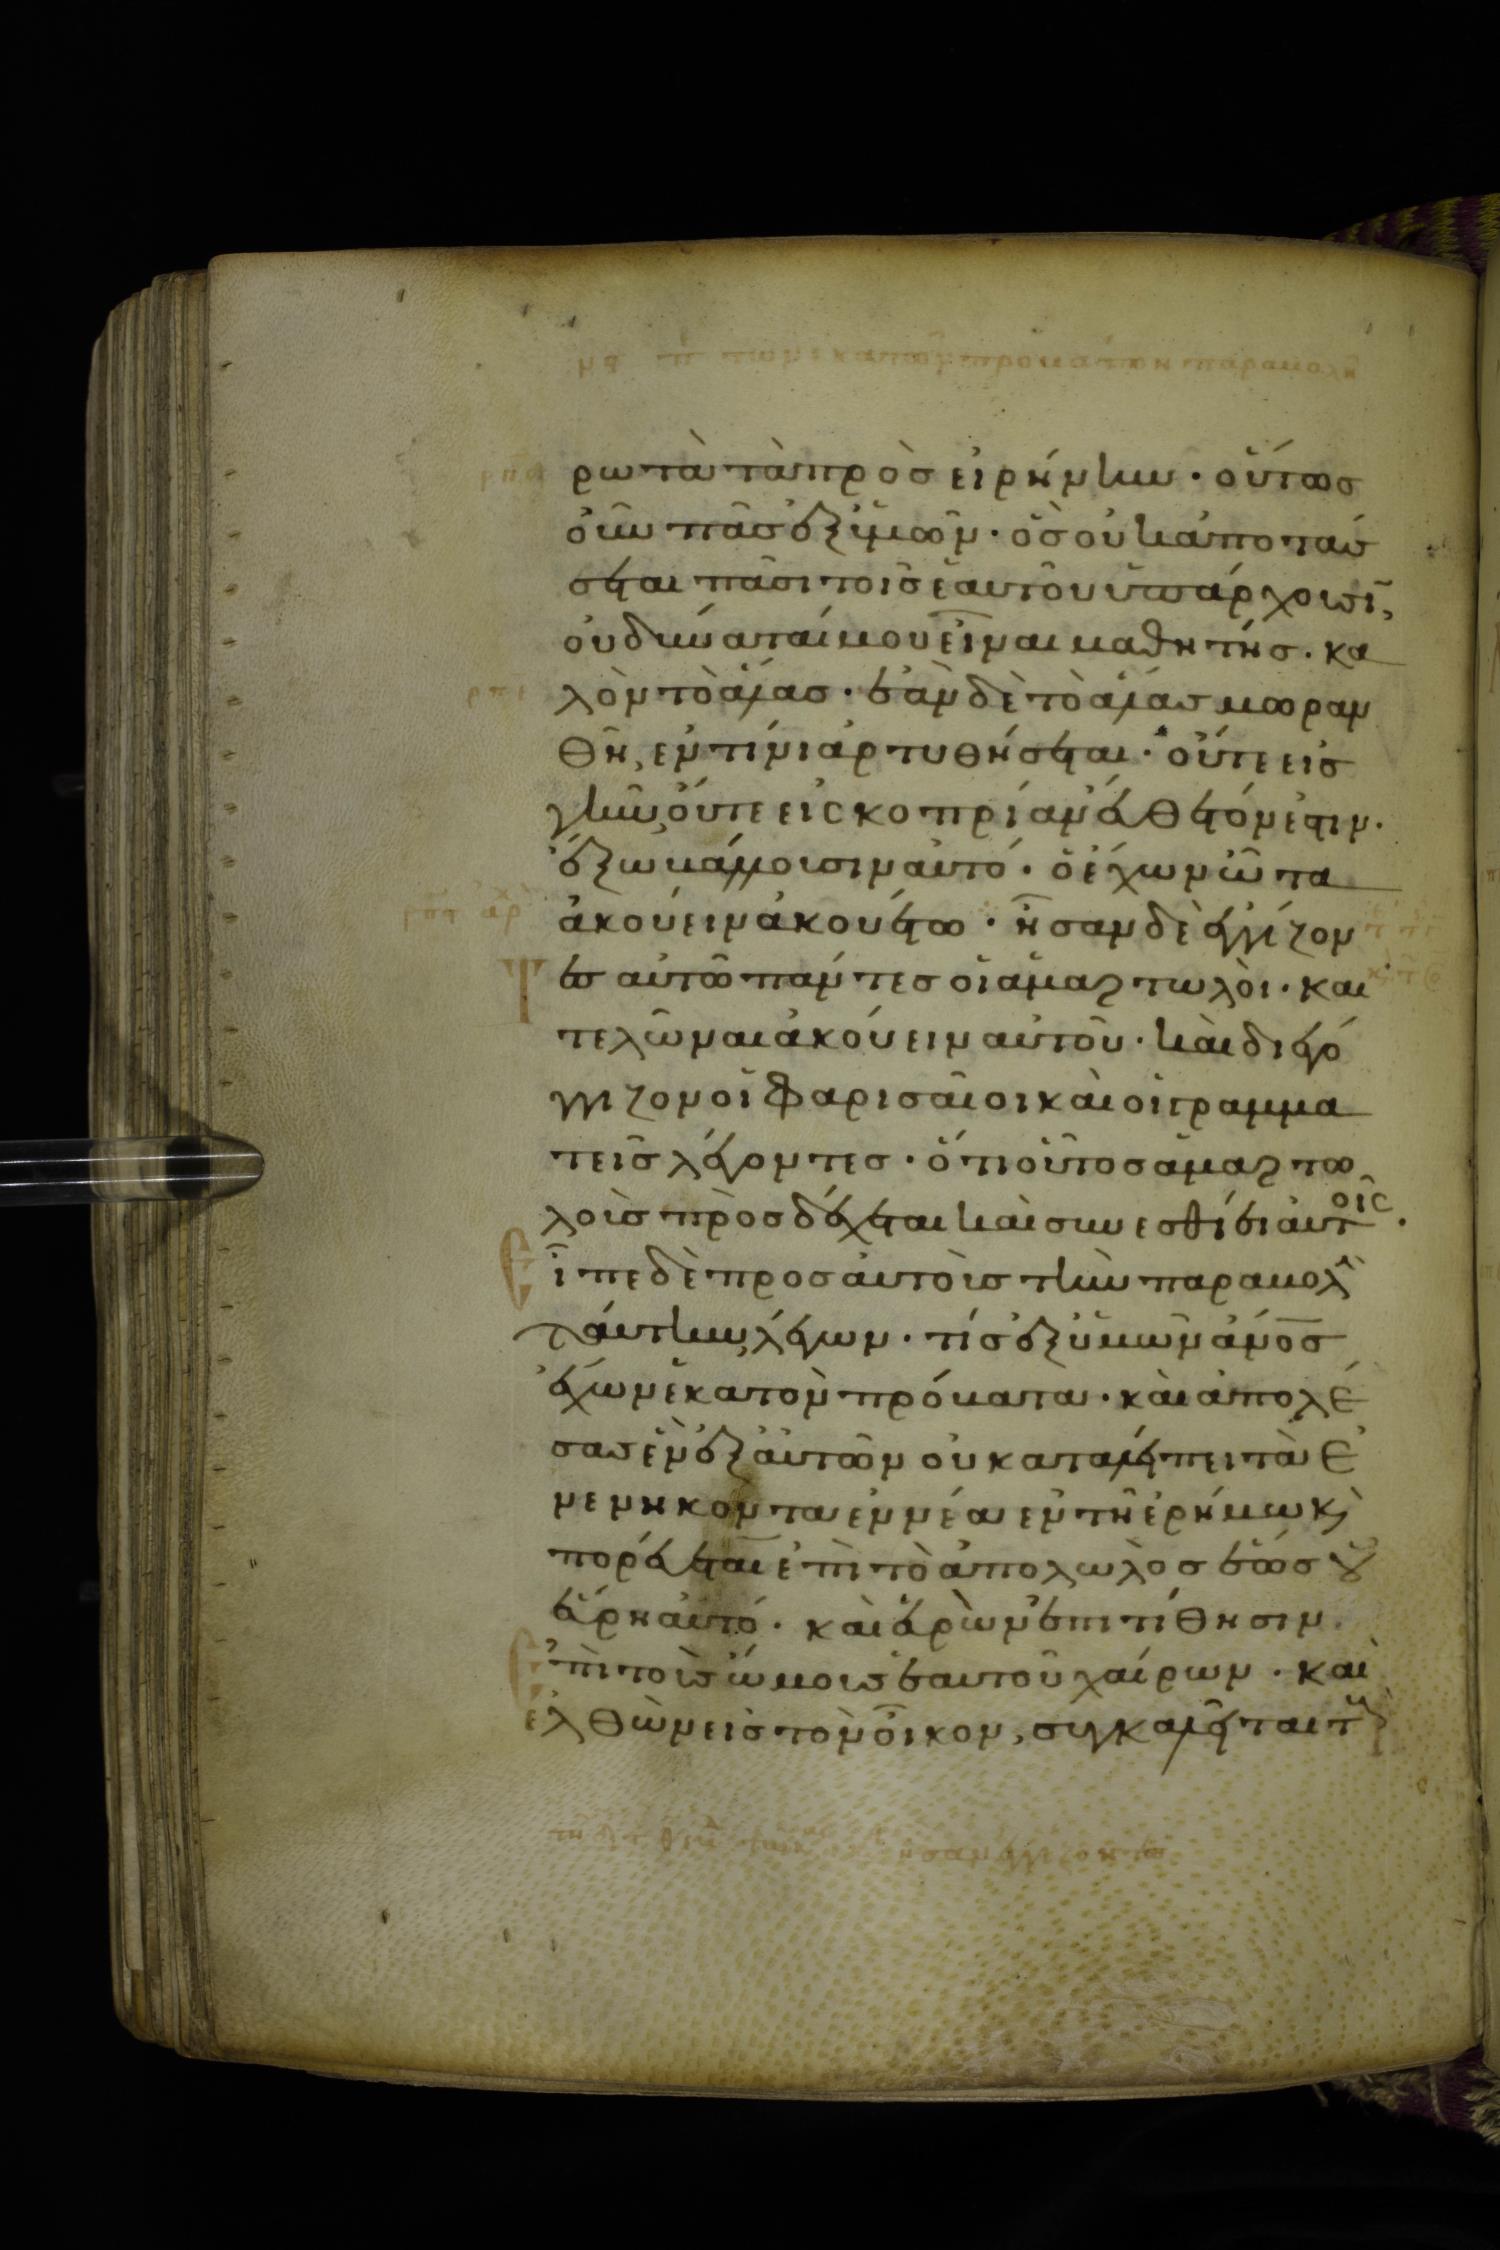 ρωτᾶ τὰ πρὸσ εἰρήνην · οὕτωσ
οὖν πᾶσ ἐξ ὑμῶν · ὃσ οὐκ ἀποτάσ
σεται πᾶσι τοῖσ ἑαυτοῦ ὑπάρχουσῖ,
οὐ δύναταί μου εἶναι μαθητήσ · κα
λὸν τὸ ἅλασ · ἐὰν δὲ τὸ ἅλασ μωραν
θῆ, ἐν τίνι ἀρτυθήσεται · οὔτε εἰσ
γῆν, οὔτε εἰς κοπρίαν εὔθετόν ἐστιν ·
ἔξω βάλλουσιν αὐτό · ὁ ἔχων ὦτα
ἀκούειν ἀκουέτω · ἦσαν δὲ ἐγγίζον
τεσ αὐτῶ πάντεσ οἱ ἁμαρτωλοὶ · και
τελῶναι ἀκούειν αὐτοῦ · καὶ διεγό
γγιζον οἱ φαρισαῖοι καὶ οἱ γραμμα
τεῖσ λέγοντεσ · ὅτι οὗτοσ ἁμαρτω
λοὺσ προσδέχεται καὶ συνεσθίει αὐτοῖς ·
Εἶπε δὲ προσ αὐτοὺσ τὴν παραβολὴ
ταύτην, λέγων · τίσ ἐξ ὑμῶν ἄνοσ
ἔχων ἑκατὸν πρόβατα · καὶ ἀπολέ
σασ ἓν ἐξ αὐτῶν οὐ καταλείπει τὰ ἐ
νενηκονταεννέα ἐν τῆ ἐρήμω κὶ
πορεύεται ἐπὶ τὸ ἀπολωλὸσ ἕωσ οὗ
εὕρη αὐτό · καὶ εὑρὼν ἐπιτίθησιν
Ἐπὶ τοὺσ ὤμουσ ἑαυτοῦ χαίρων · καὶ
ἐλθὼν εἰσ τὸν οἶκον, συγκαλεῖται τ